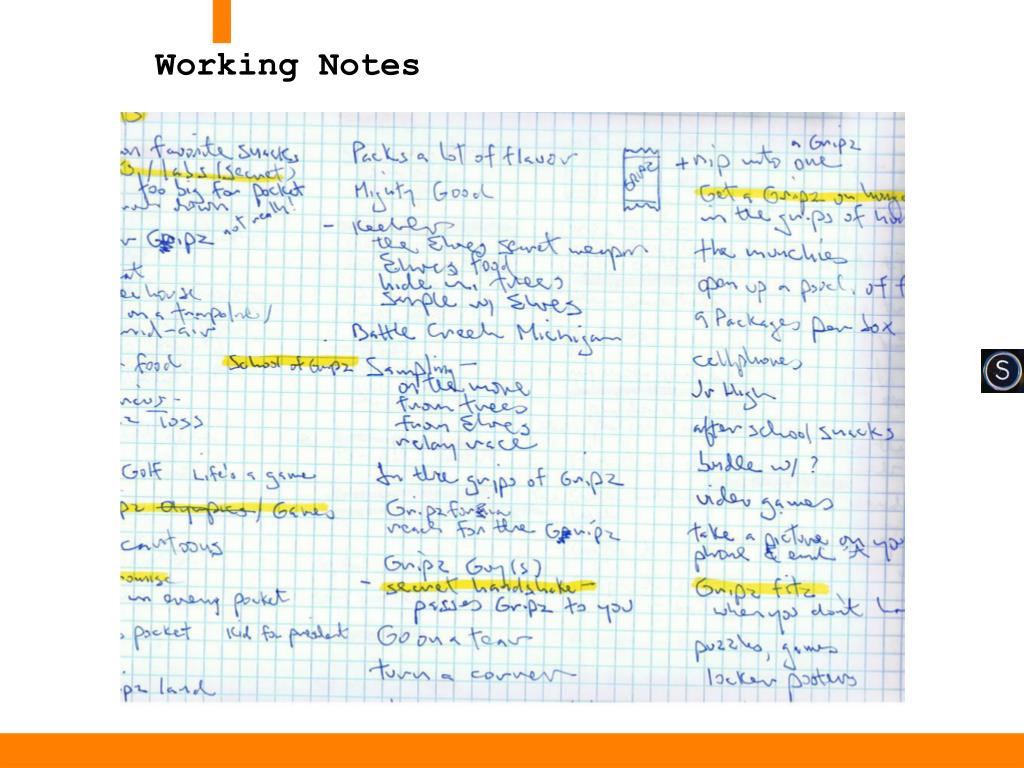 Working Notes
on favorite snacks
/ Lab's (secret)
too big for pocket
not really!
Gripz
house
on a trampoline/
mid-air
food
School of Gripz
Toss
Golf Life's a game
Olympics / Games
cartoons
in every pocket
pocket Kid for president
pz land
Packs a lot of flavor
Mighty Good
- Keebler
the Elves secret weapon
Elves food
hide in trees
sample w/ Elves
Battle Creek Michigan
Sampling -
on the move
from trees
from Elves
relay race
In the grips of Gripz
Gripz
reach for the Gripz
Gripz Guy(s)
- secret handshake -
passes Gripz to you
Go on a tear
turn a corner
GRIPZ
a Gripz
+ rip into one
Get a Gripz on
in the grips of
the munchies
open up a of
9 Packages per box
cellphones
Jr High
after school snacks
bundle w/ ?
video games
take a picture on
phone & send it
Gripz fitz
when you don't
puzzles, games
locker posters
S